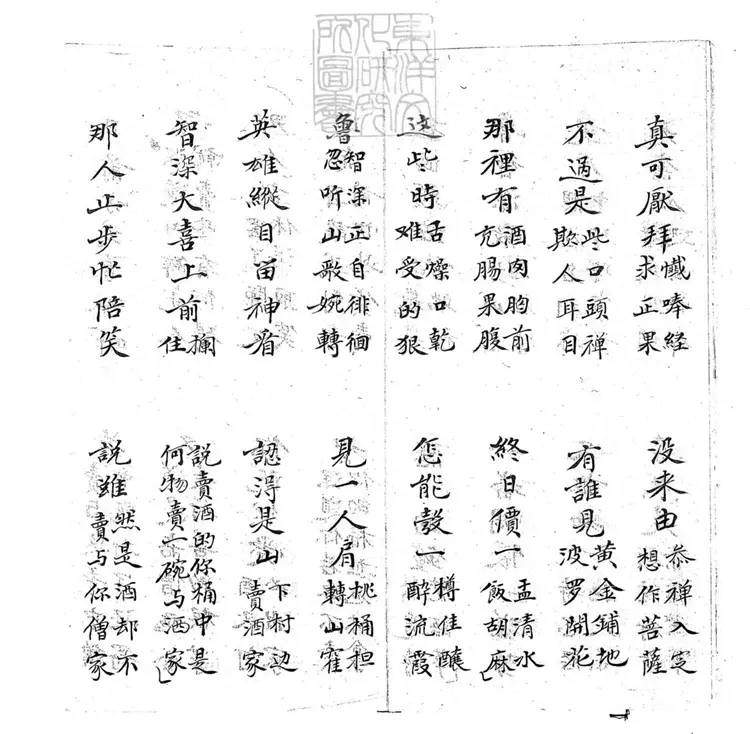 東洋文化研究所圖書
真可厭拜懴唪経求正果
没来由叅禅入定想作菩薩
不過是些口頭禅欺人耳目
有誰見黄金鋪地波罗開花
那裡有酒肉胸前充腸果腹
終日價一盂清水飯胡麻
这些時舌燥口乾难受的狠
怎能彀一樽佳釀醉流霞
魯智深正自徘徊忽听山歌婉轉
見一人肩桃桶担轉山窪
英雄縱目畄神看
認得是山下村边賣酒家
智深大喜上前攔住
説賣酒的你桶中是何物賣一碗与洒家
那人止步忙陪笑
説雖然是酒却不賣与你僧家